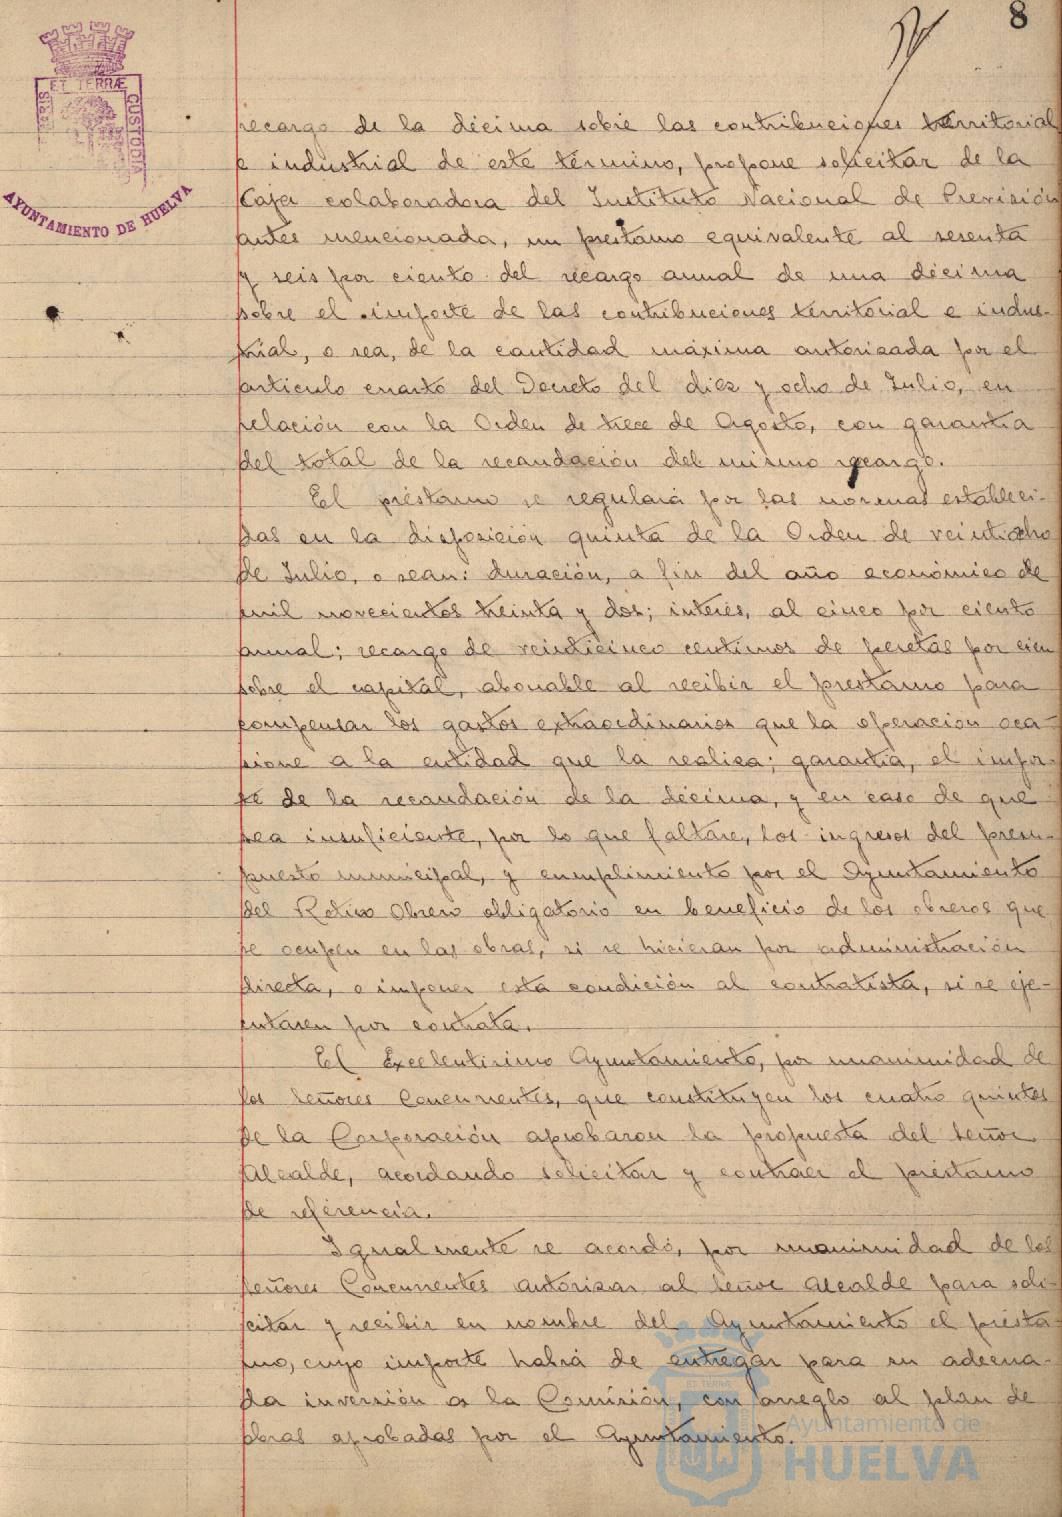 8
PORTUS MARIS ET TERRÆ CUSTODIA
AYUNTAMIENTO DE HUELVA
recargo de la décima sobre las contribuciones territorial
e industrial de este término, propone solicitar de la
Caja colaboradora del Instituto Nacional de Previsión
antes mencionada, un préstamo equivalente al sesenta
y seis por ciento del recargo anual de una décima
sobre el importe de las contribuciones territorial e indus-
trial, o sea, de la cantidad máxima autorizada por el
artículo cuarto del Decreto del diez y ocho de Julio, en
relación con la Orden de trece de Agosto, con garantía
del total de la recaudación del mismo recargo.
El préstamo se regulará por las normas estableci-
das en la disposición quinta de la Orden de veintiocho
de Julio, o sean: duración, a fin del año económico de
mil novecientos treinta y dos; interés, al cinco por ciento
anual; recargo de veinticinco centimos de pesetas por cien
sobre el capital, abonable al recibir el prestamo para
compensar los gastos extraordinarios que la operación oca-
sione a la entidad que la realiza; garantía, el impor-
te de la recaudación de la décima, y en caso de que
sea insuficiente, por lo que faltare, los ingresos del presu-
puesto municipal, y cumplimiento por el Ayuntamiento
del Retiro Obrero obligatorio en beneficio de los obreros que
se ocupen en las obras, si se hicieran por administración
directa, o imponer esta condición al contratista, si se eje-
cutasen por contrata.
El Excelentisimo Ayuntamiento, por unanimidad de
los Señores Concurrentes, que constituyen los cuatro quintos
de la Corporación aprobaron la propuesta del Señor
Alcalde, acordando solicitar y contraer el préstamo
de referencia.
Igualmente se acordó, por unanimidad de los
Señores Concurrentes autorizar al Señor Alcalde para soli-
citar y recibir en nombre del Ayuntamiento el présta-
mo, cuyo importe habrá de entregar para su adecua-
da inversión a la Comisión, con arreglo al plan de
obras aprobadas por el Ayuntamiento.
Ayuntamiento de
HUELVA